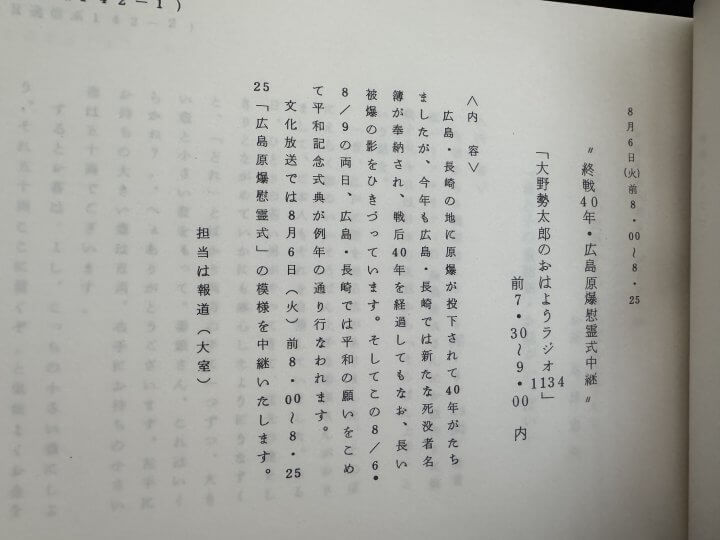 142-1)
8月6日(火)前8・00〜8・25
〃終戦40年・広島原爆慰霊式中継〃
「大野勢太郎のおはようラジオ1134」
前7・30〜9・00 内
〈内 容〉
広島・長崎の地に原爆が投下されて40年がたち
ましたが、今年も広島・長崎では新たな死没者名
簿が奉納され、戦后40年を経過してもなお、長い
被爆の影をひきづっています。そしてこの8/6・
8/9の両日、広島・長崎では平和の願いをこめ
て平和記念式典が例年の通り行なわれます。
文化放送では8月6日(火)前8・00〜8・25
25「広島原爆慰霊式」の模様を中継いたします。
担当は報道(大室)